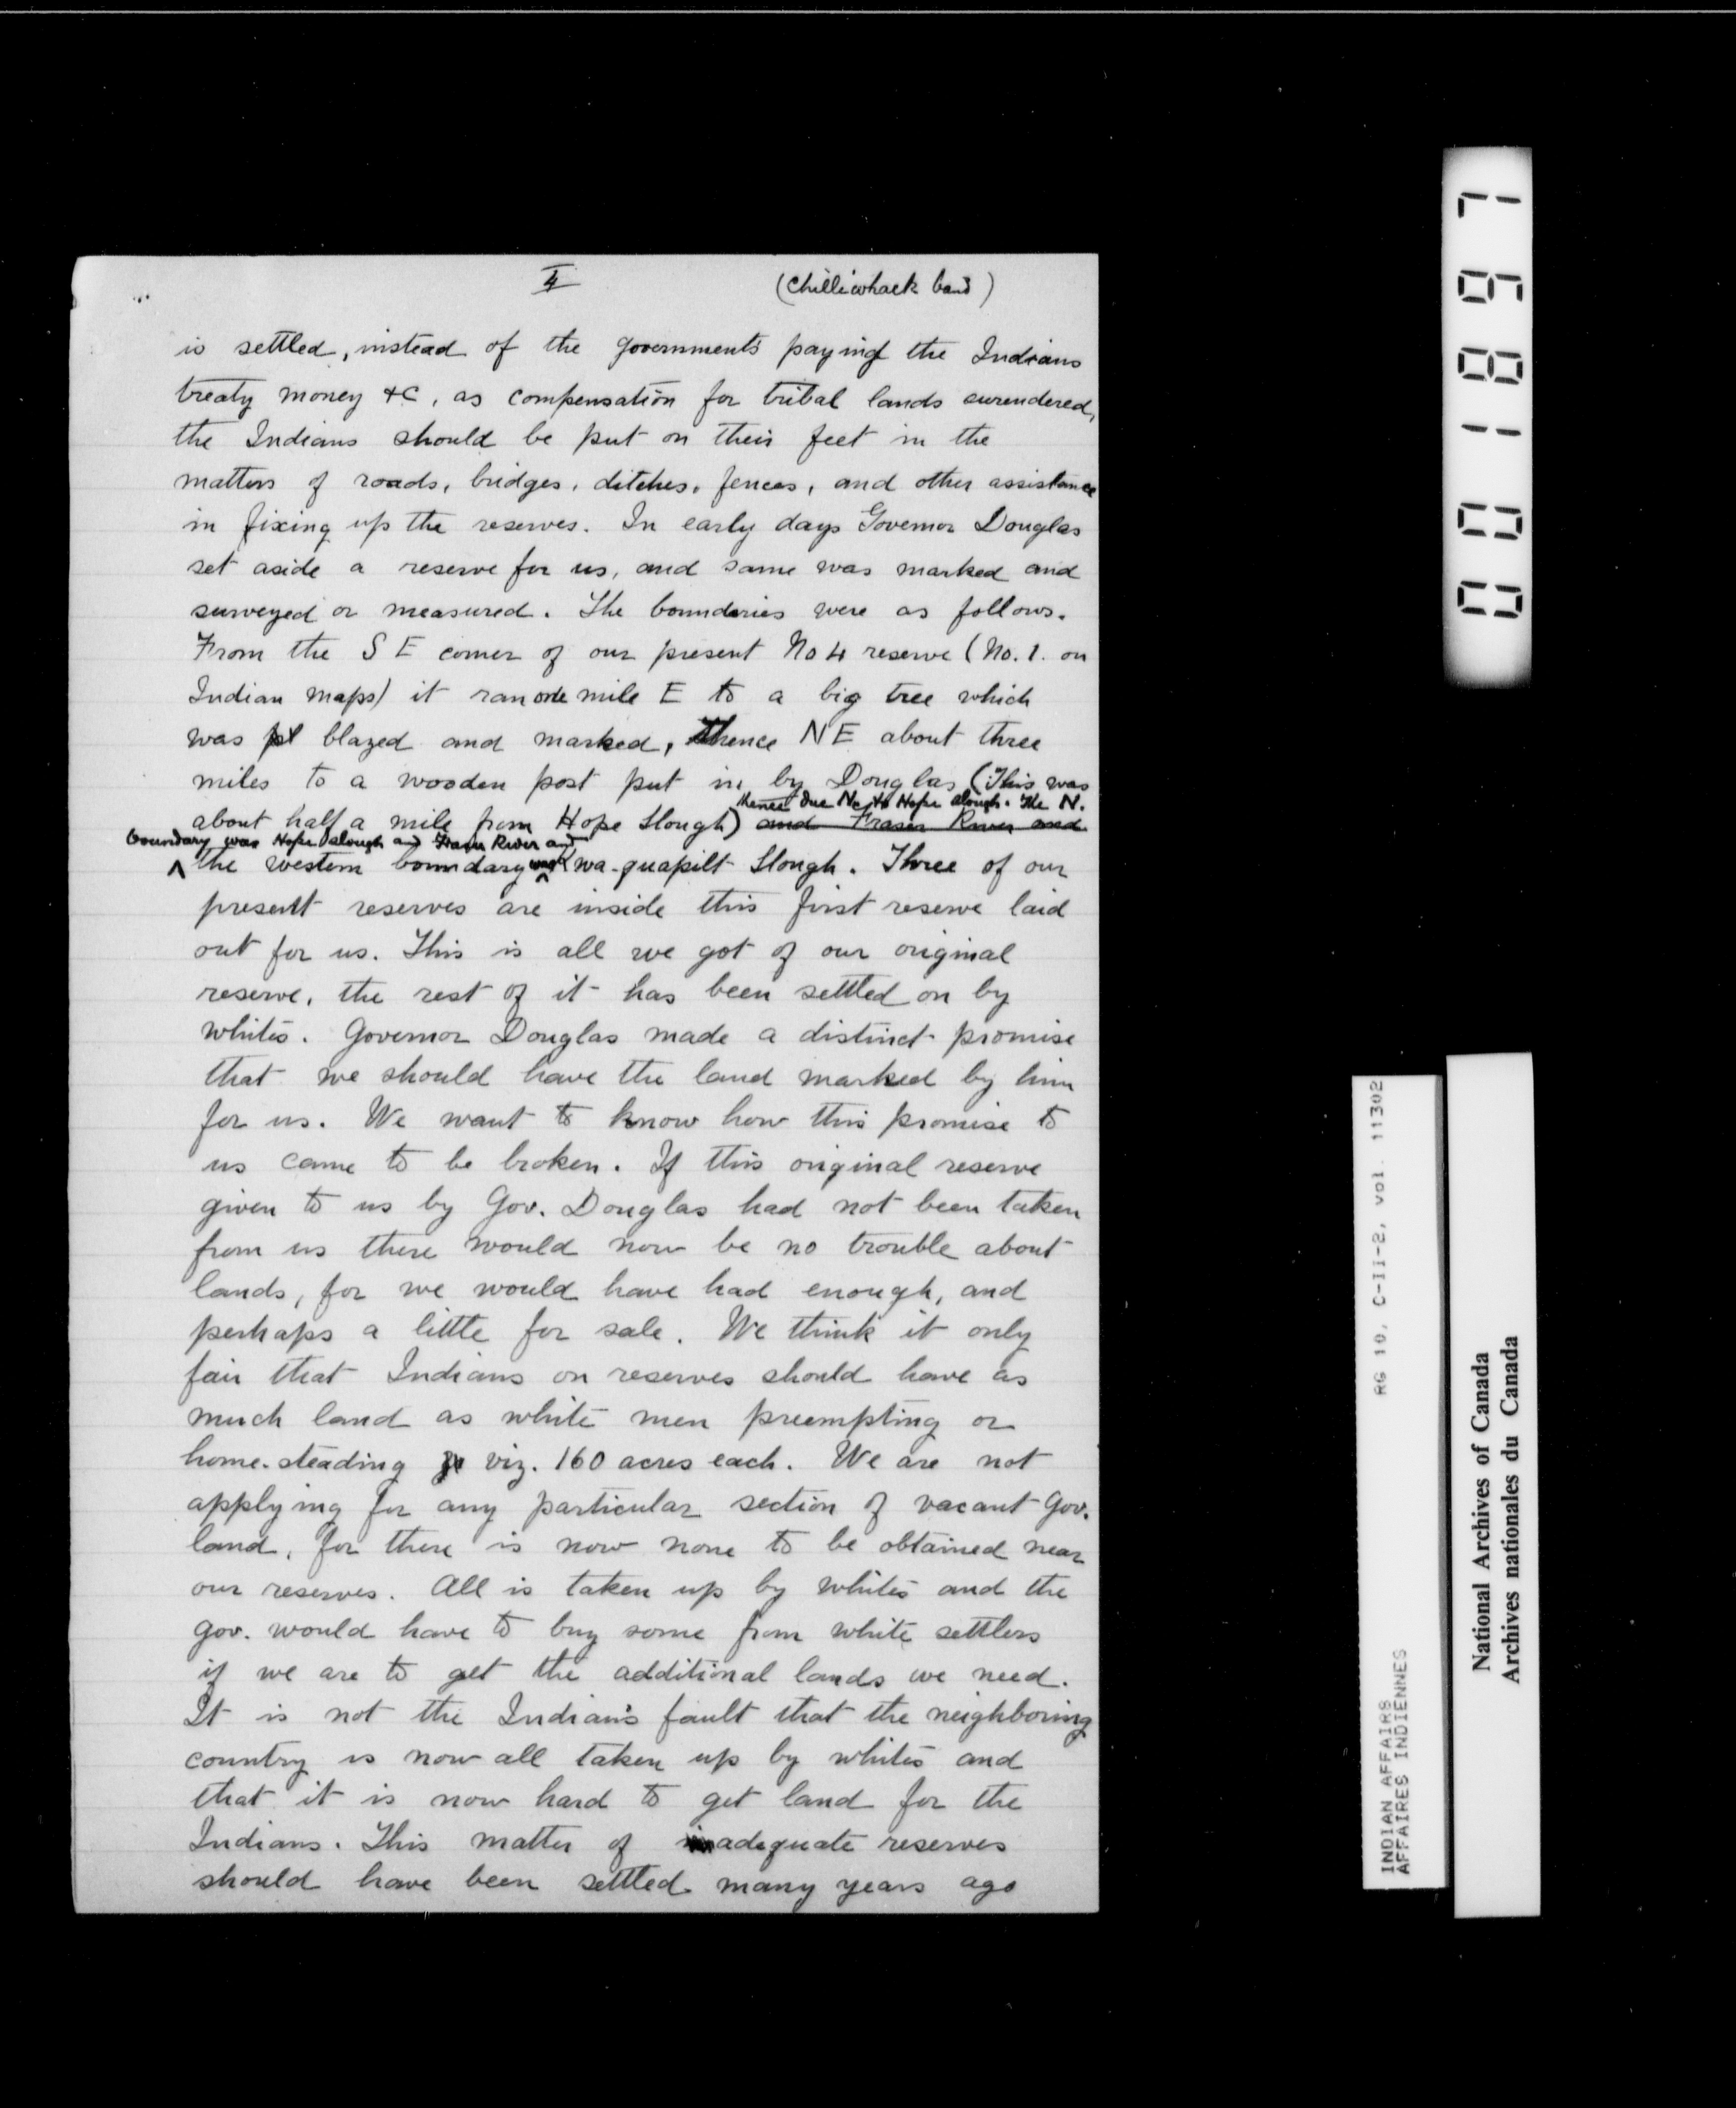 4
(Chilliwhack band)
is settled, instead of the government's paying the Indians
treaty money &c, as compensation for tribal lands surendered,
the Indians should be put on their feet in the
matters of roads, bridges, ditches, fences, and other assistance
in fixing up the reserves. In early days Governor Douglas
set aside a reserve for us, and same was marked and
surveyed or measured. The boundaries were as follows.
From the S E corner of our present No 4 reserve (No. 1. on
Indian maps) it ran one mile E to a big tree which
was blazed and marked, thence NE about three
miles to a wooden post put in by Douglas (This was
thence due N. to Hope slough. The N.
about half a mile from Hope Slough) and Fraser River and
boundary was Hope slough and Fraser River and
the western boundary was Kwa-quapilt Slough. Three of our
present reserves are inside this first reserve laid
out for us. This is all we got of our original
reserve, the rest of it has been settled on by
whites. Governor Douglas made a distinct promise
that we should have the land marked by him
for us. We want to know how this promise to
us came to be broken. If this original reserve
given to us by Gov. Douglas had not been taken
from us there would now be no trouble about
lands, for we would have had enough, and
perhaps a little for sale. We think it only
fair that Indians on reserves should have as
much land as white men preempting or
home-steading viz. 160 acres each. We are not
applying for any particular section of vacant Gov.
land, for there is now none to be obtained near
our reserves. All is taken up by whites and the
gov. would have to buy some from white settlers
if we are to get the additional lands we need.
It is not the Indian's fault that the neighboring
country is now all taken up by whites and
that it is now hard to get land for the
Indians. This matter of inadequate reserves
should have been settled many years ago
001897
RG 10, C-II-2, vol. 11302
INDIAN AFFAIRS
AFFAIRES INDIENNES
National Archives of Canada
Archives nationales du Canada